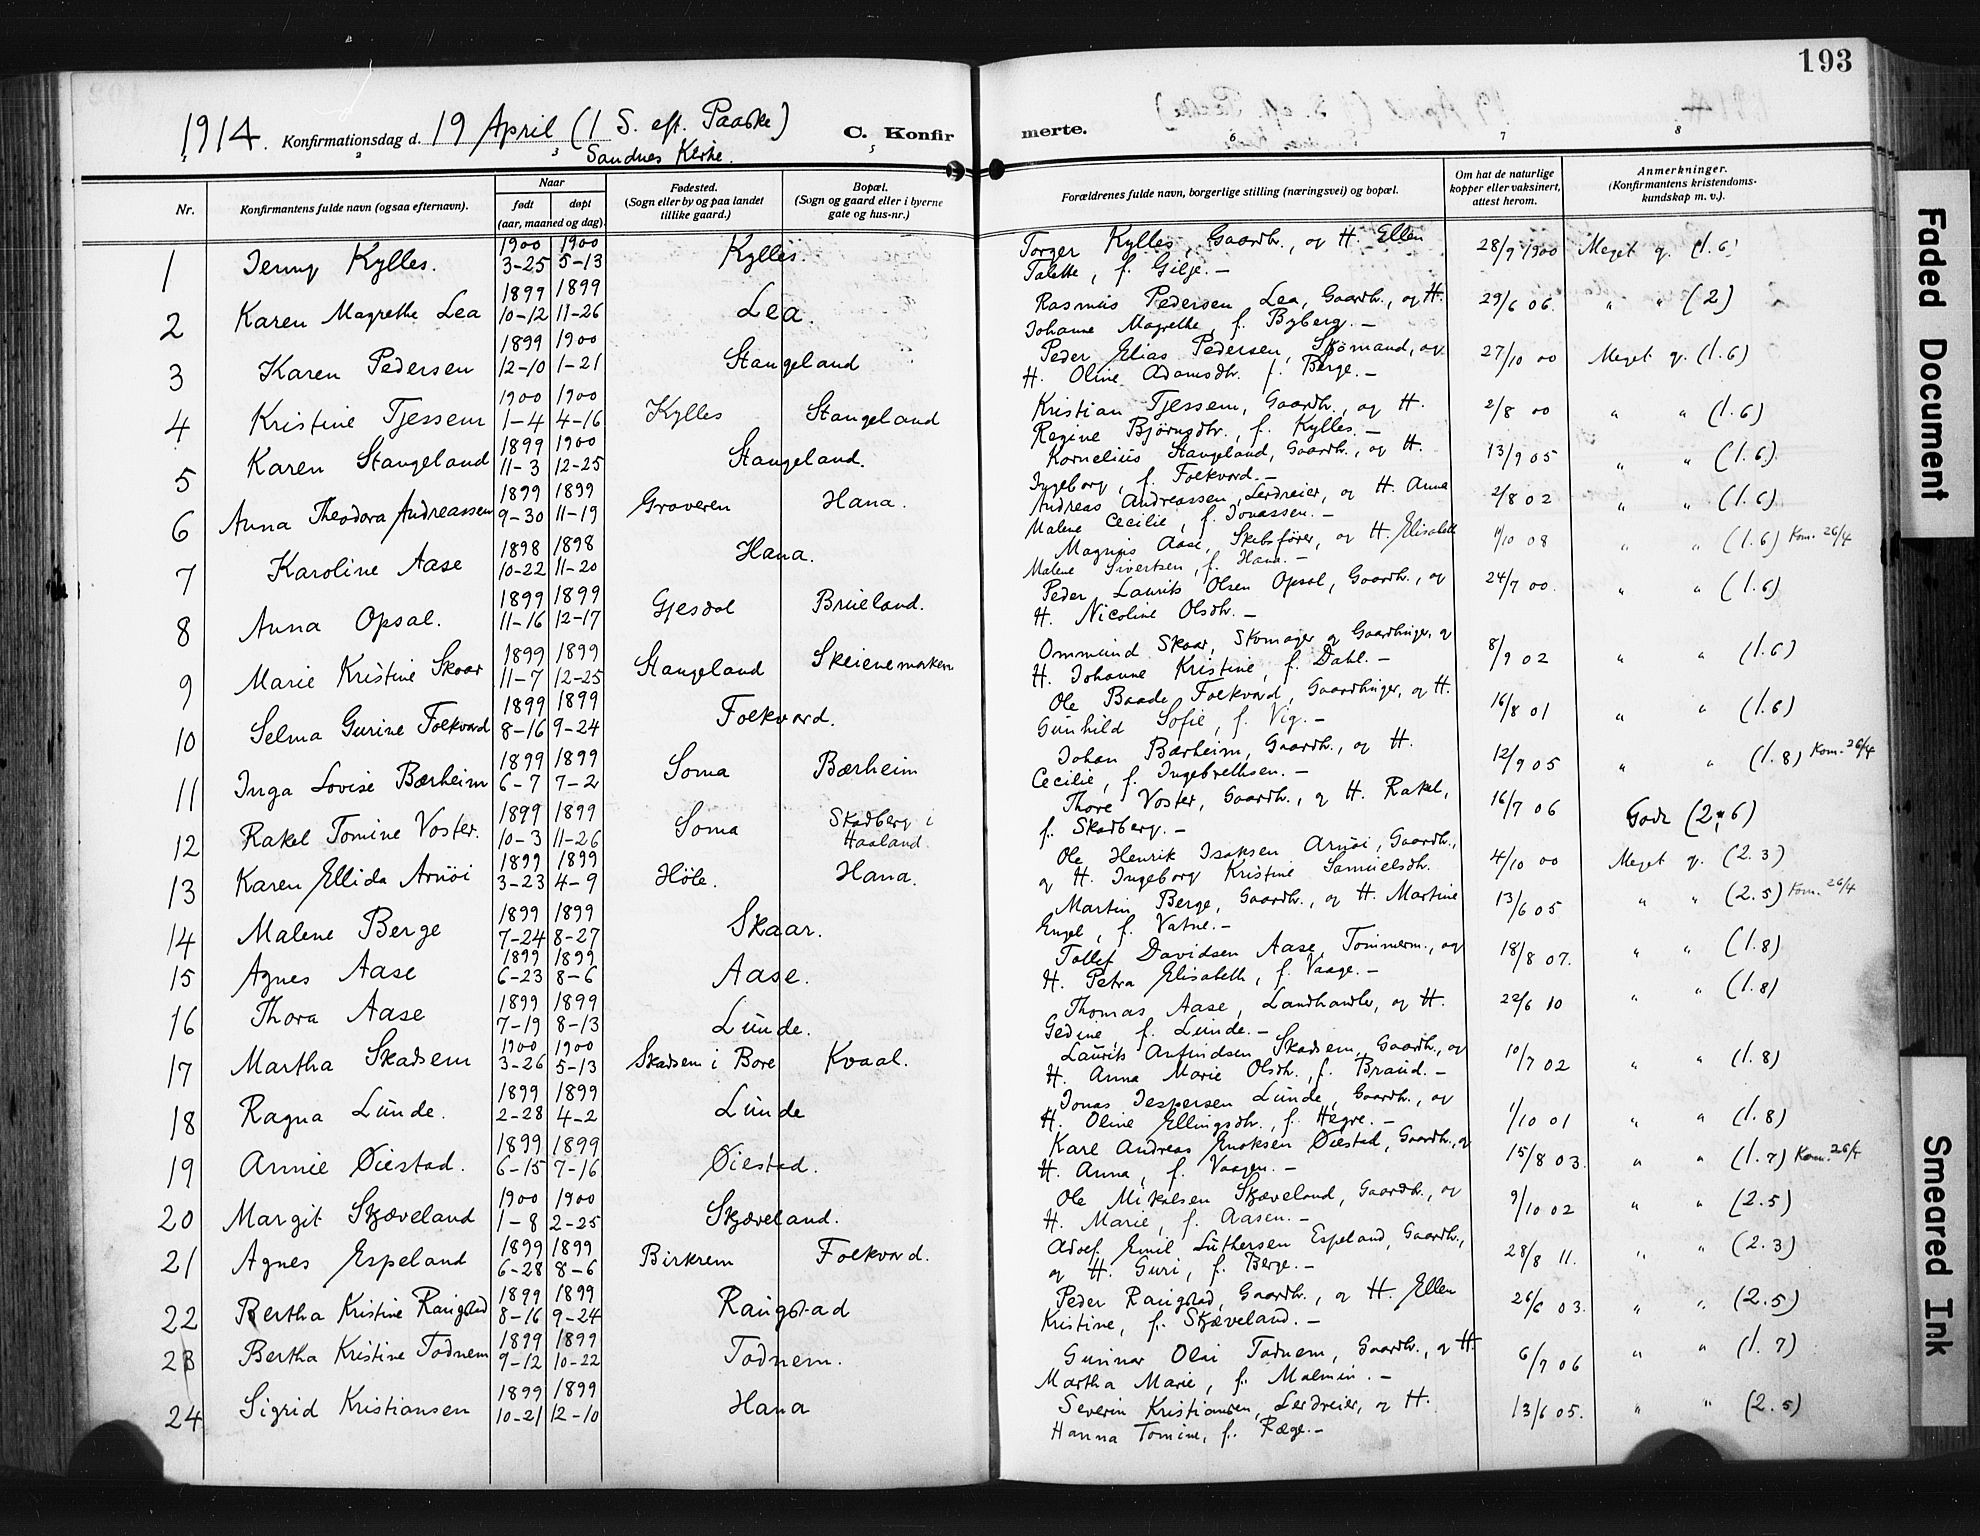 193
1914. Konfirmationsdag d. 19 April (1 S. eft. Paaske) C. Konfirmerte.
Sandnes Kirke.
2 3 5 6 7 8
Nr. Konfirmantens fulde navn (ogsaa efternavn). Naar født døpt (aar, maaned og dag). Fødested. (Sogn eller by og paa landet tillike gaard.) Bopæl. (Sogn og gaard eller i byerne gate og hus-nr.) Forældrenes fulde navn, borgerlige stilling (næringsvei) og bopæl. Om hat de naturlige kopper eller vaksinert, attest herom. Anmerkninger. (Konfirmantens kristendoms-kundskap m. v.).
1 Jenny Kylles. 1900 3-25 1900 5-13 Kylles. Torger Kylles, Gaardb., og H. Ellen 28/9 1900 Meget g. (1.6)
Talette, f. Gilje. –
2 Karen Magrethe Lea 1899 10-12 1899 11-26 Lea. Rasmus Pedersen Lea, Gaardb., og H. 29/6 06. " " (2)
Johanne Magrethe, f. Byberg. –
3 Karen Pedersen 1899 12-10 1900 1-21 Stangeland Peder Elias Pedersen, Sjömand, og 27/10 00 Meget g. (1.6)
H. Oline Adamsdtr. f. Berge. –
4 Kristine Tjessem 1900 1-4 1900 4-16 Kylles Stangeland Kristian Tjessem, Gaardb., og H. 2/8 00 " " (1.6)
Regine Bjørnsdtr., f. Kylles. –
5 Karen Stangeland 1899 11-3 1900 12-25 Stangeland. Kornelius Stangeland, Gaardb., og H. 13/9 05 " " (1.6)
Ingeborg, f. Folkvord. –
6 Anna Theodora Andreassen 1899 9-30 1899 11-19 Graveren Hana. Andreas Andreassen, Lerdreier, og H. Anna 2/8 02 " " (1.6)
Malene Cecilie, f. Jonassen. –
7 Karoline Aase 1898 10-22 1898 11-20 Hana. Magnus Aase, Skibsfører, og H. Elisabeth 11/10 08 " " (1.6) Kom. 26/4
Malene Sivertsen, f. Hana. –
8 Anna Opsal. 1899 11-16 1899 12-17 Gjesdal Brueland. Peder Laurits Olsen Opsal, Gaardb., og 24/7 00. " " (1.6)
H. Nicoline Olsdtr. –
9 Marie Kristine Skaar 1899 11-7 1899 12-25 Stangeland Skeienemarken Ommund Skaar, Skomager og Gaardbruger, og 8/9 02 " " (1.6)
H. Johanne Kristine, f. Dahl. –
10 Selma Gurine Folkvord 1899 8-16 1899 9-24 Folkvord. Ole Baade Folkvord, Gaardbruger, og H. 16/8 01 " " (1.6)
Gunhild Sofie, f. Vig. –
11 Inga Lovise Bærheim 1899 6-7 1899 7-2 Soma Bærheim Johan Bærheim, Gaardb., og H. 12/9 05 " " (1.8) Kom. 26/4
Cecilie, f. Ingebrethsen. –
12 Rakel Tomine Voster. 1899 10-3 1899 11-26 Soma Skadberg i Haaland. Thore Voster, Gaardb., og H. Rakel, 16/7 06 Godt (2.6)
f. Skadberg. –
13 Karen Ellida Arnöi 1899 3-23 1899 4-9 Höle. Hana. Ole Henrik Isaksen Arnöi, Gaardb., 4/10 00 Meget g. (2.3)
og H. Ingeborg Kristine Samuelsdtr.
14 Malene Berge 1899 7-24 1899 8-27 Skaar. Martin Berge, Gaardb., og H. Martine 13/6 05 " " (2.5) Kom. 26/4
Engel, f. Vatne. –
15 Agnes Aase 1899 6-23 1899 8-6 Aase. Tollef Davidsen Aase, Tömmerm., og 18/8 07. " " (1.8)
H. Petra Elisabeth, f. Vaage. –
16 Thora Aase 1899 7-19 1899 8-13 Lunde. Thomas Aase, Landhandler, og H. 22/6 10 " " (1.8)
Gedine f. Lunde. –
17 Martha Skadsem 1900 3-26 1900 5-13 Skadsem i Bore Kvaal. Laurits Arfindsen Skadsem, Gaardb., og 10/7 02 " " (1.8)
H. Anna Marie Olsdtr., f. Braud. –
18 Ragna Lunde. 1899 2-28 1899 4-2 Lunde Jonas Jespersen Lunde, Gaardb., og 1/10 01 " " (1.8)
H. Oline Ellingsdtr., f. Hegre. –
19 Annie Øiestad. 1899 6-15 1899 7-16 Øiestad. Karl Andreas Enoksen Øiestad, Gaardb., og 15/8 03. " " (1.7) Kom. 26/4
H. Anna, f. Vaagen. –
20 Margit Skjæveland 1900 1-8 1900 2-25 Skjæveland. Ole Mikalsen Skjæveland, Gaardb., og 9/10 02 " " (2.5)
H. Marie, f. Aasen. –
21 Agnes Espeland 1899 6-28 1899 8-6 Birkrem Folkvord. Adolf Emil Luthersen Espeland, Gaardb., 28/8 11. " " (2.3)
og H. Guri, f. Berge. –
22 Bertha Kristine Raugstad 1899 8-16 1899 9-24 Raugstad Peder Raugstad, Gaardb., og H. Ellen 26/6 03. " " (2.5)
Kristine, f. Skjæveland. –
23 Bertha Kristine Todnem 1899 9-12 1899 10-22 Todnem. Gunnar Olai Todnem, Gaardb., og H. 6/9 06 " " (1.7)
Martha Marie, f. Malmin. –
24 Sigrid Kristiansen 1899 10-21 1899 12-10 Hana Severin Kristiansen, Lerdreier, og H. 13/6 05. " " (2.5)
Hanna Tomine, f. Ræge. –
Faded Document
Smeared Ink